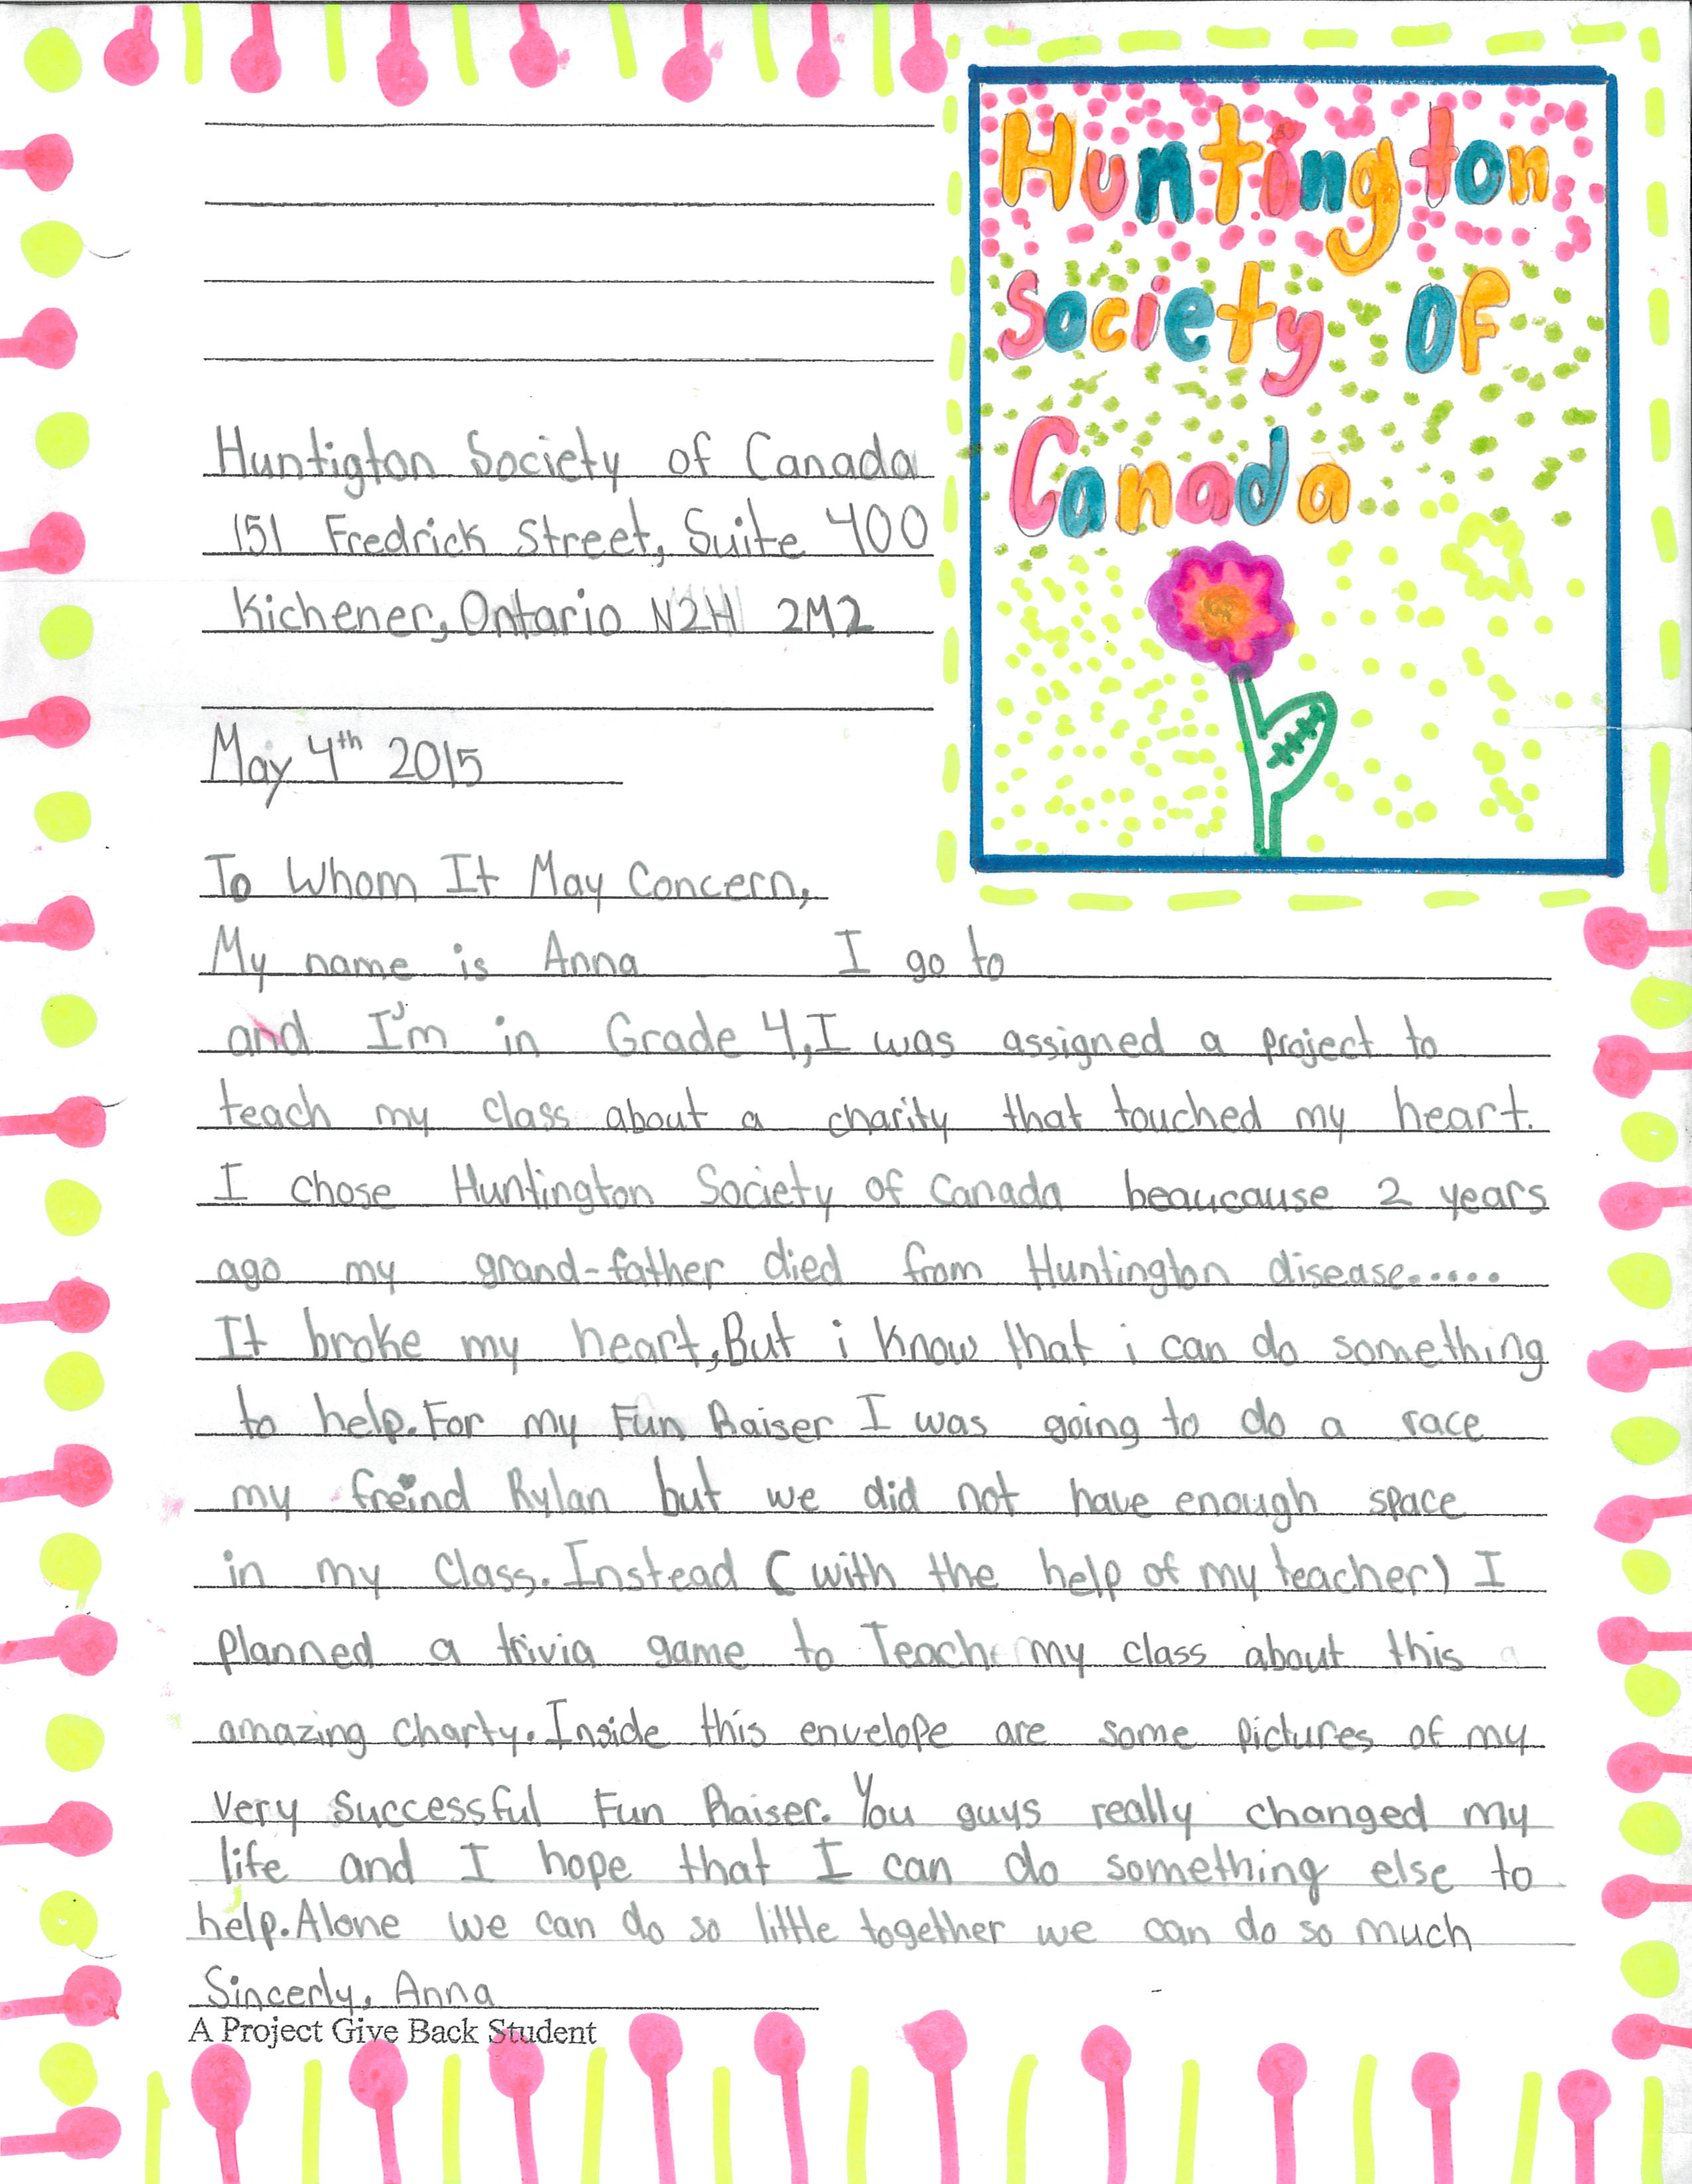 Huntington
Society Of
Canada
Huntigton Society of Canada
151 Fredrick Street, Suite 400
Kichener, Ontario N2H 2M2
May 4th 2015
To Whom It May Concern,
My name is Anna I go to
and I'm in Grade 4, I was assigned a project to
teach my class about a charity that touched my heart.
I chose Huntington Society of Canada beaucause 2 years
ago my grand-father died from Huntington disease......
It broke my heart, But i know that i can do something
to help. For my Fun Raiser I was going to do a race
my freind Rylan but we did not have enough space
in my class. Instead (with the help of my teacher) I
planned a trivia game to Teach my class about this
amazing charty. Inside this envelope are some pictures of my
very successful Fun Raiser. You guys really changed my
life and I hope that I can do something else to
help. Alone we can do so little together we can do so much
Sincerly, Anna
A Project Give Back Student